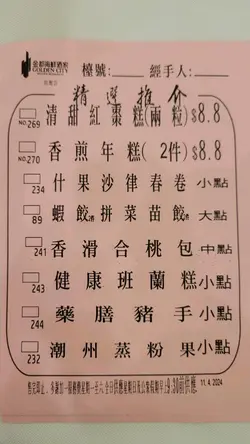 金都海鮮酒家
GOLDEN CITY
檯號:____ 經手人:____
精選推介
NO.269 清甜紅棗糕(兩粒)$8.8
NO.270 香煎年糕(2件)$8.8
234 什果沙律春卷 小點
89 蝦餃拼菜苗餃 大點
241 香滑合桃包 中點
243 健康班蘭糕 小點
244 藥膳豬手 小點
232 潮州蒸粉果 小點
11.4.2024